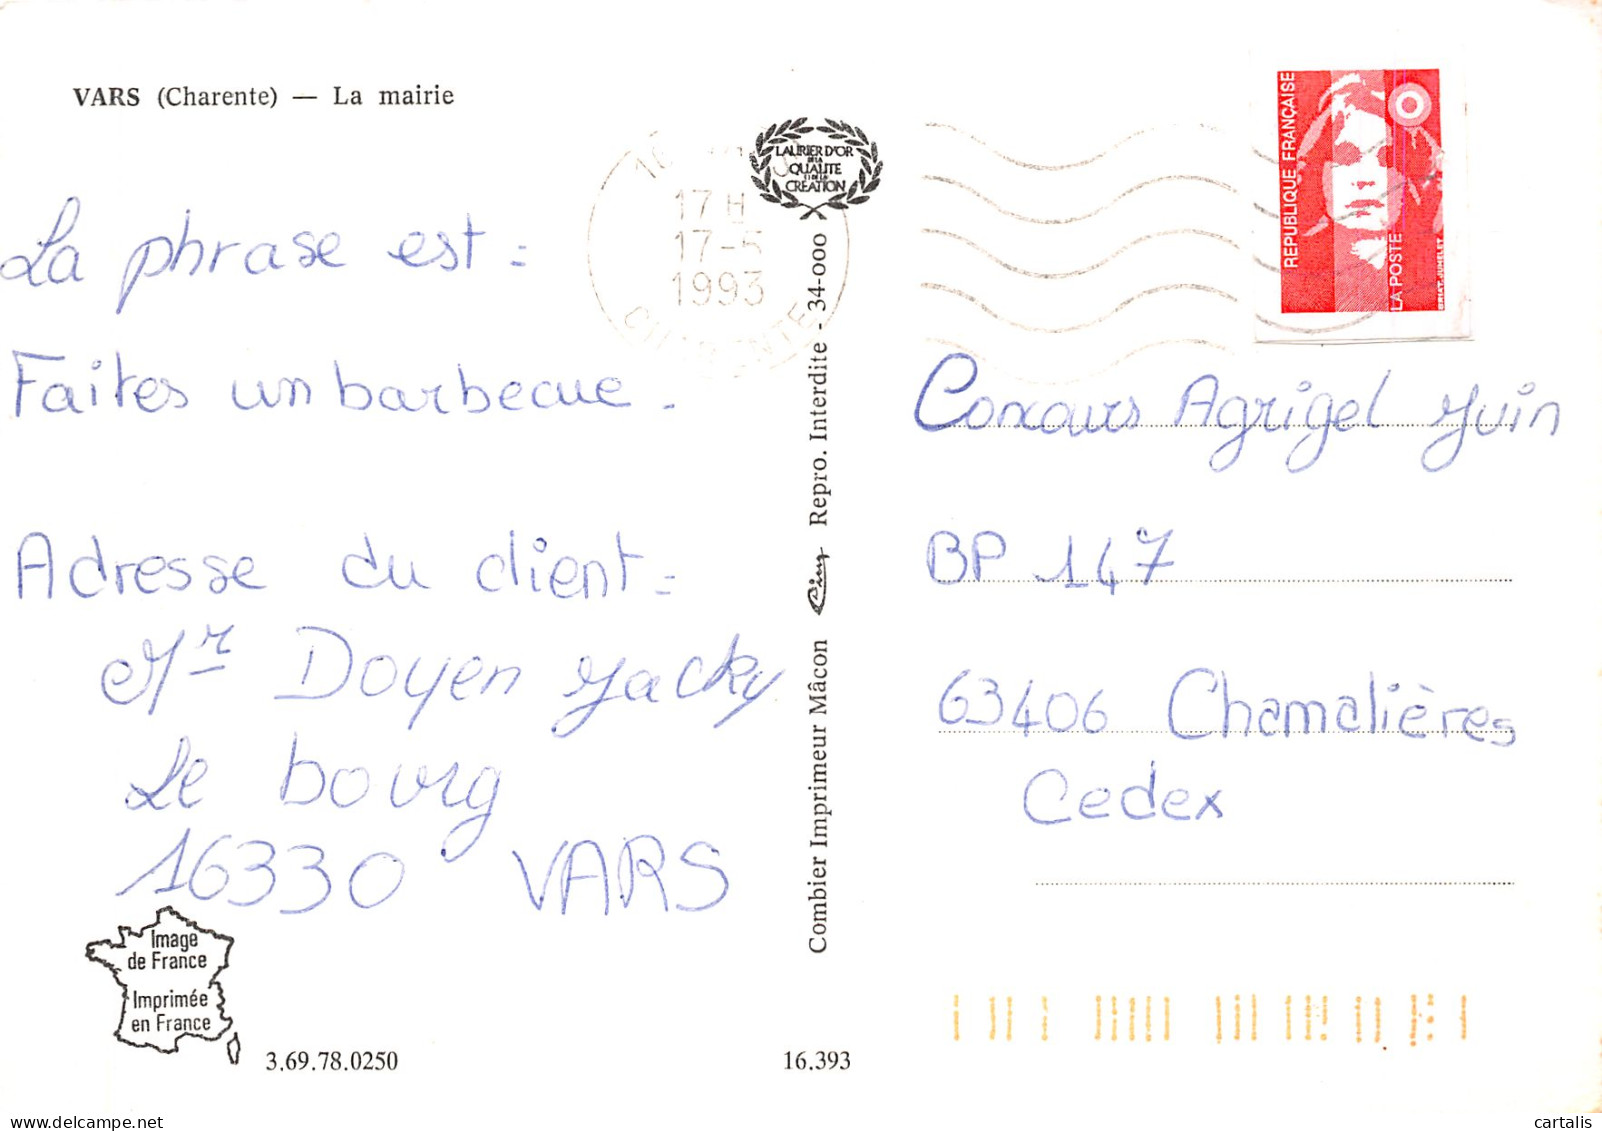 VARS (Charente) — La mairie
La phrase est :
Faites un barbecue.
Adresse du client :
Mr Doyen Jacky
Le bourg
16330 VARS
Image
de France
Imprimée
en France
3.69.78.0250
16.393
17 H
17-5
1993
CHARENTE
LAURIER D'OR
DE LA
QUALITE
ET DE LA
CREATION
Combier Imprimeur Mâcon
Repro. Interdite - 34-000
REPUBLIQUE FRANÇAISE
LA POSTE
Concours Agrigel Juin
BP 147
63406 Chamalières
Cedex
delcampe.net
cartalis